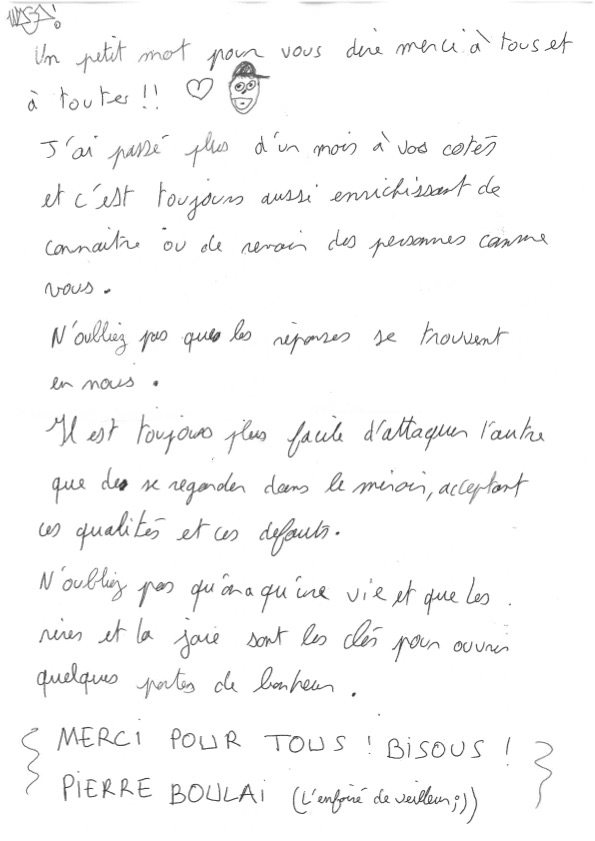 Un petit mot pour vous dire merci à tous et
à toutes !!
J'ai passé plus d'un mois à vos cotés
et c'est toujours aussi enrichissant de
connaitre ou de revoir des personnes comme
vous.
N'oubliez pas que les réponses se trouvent
en nous.
Il est toujours plus facile d'attaquer l'autre
que de se regarder dans le miroir, acceptant
ces qualités et ces defauts.
N'oubliez pas qu'on a qu'une vie et que les
rires et la joie sont les clés pour ouvrir
quelques portes de bonheur.
MERCI POUR TOUS ! BISOUS !
PIERRE BOULAI (L'enfoiré de veilleur ;))